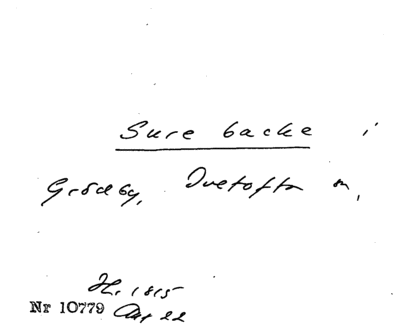 Sure backe i
Grödby, Ovetofta m,
H. 1815
Nr 10779 Aug 22